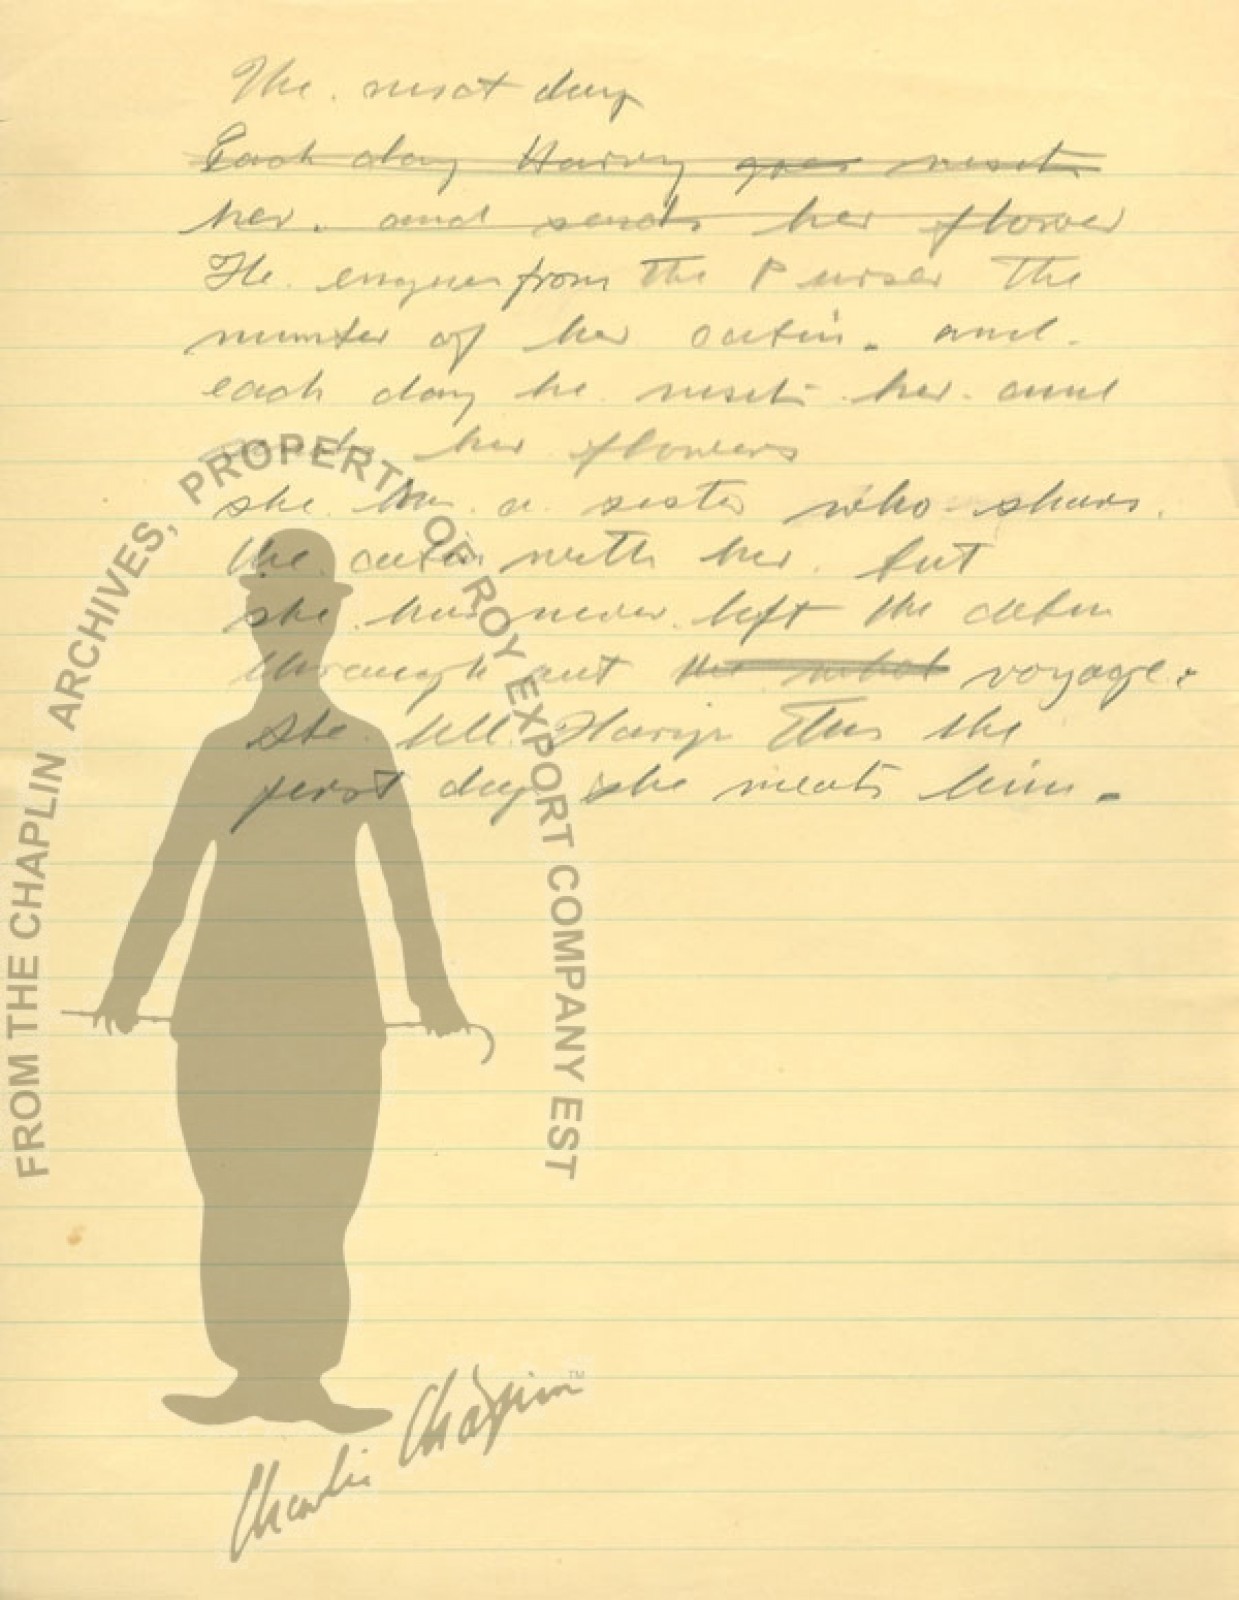 The next day
Each day Harvey goes
her. and sends her flower
He. enques from the Purser the
number of her cabin. and.
each day he her. and
sends her flowers
she. has a sister who shares.
the. cabin with her. but
she. has never left the cabin
through out the whol voyage.
She. tell the
first day she meats him.
FROM THE CHAPLIN ARCHIVES, PROPERTY OF ROY EXPORT COMPANY EST
Charlie Chaplin™